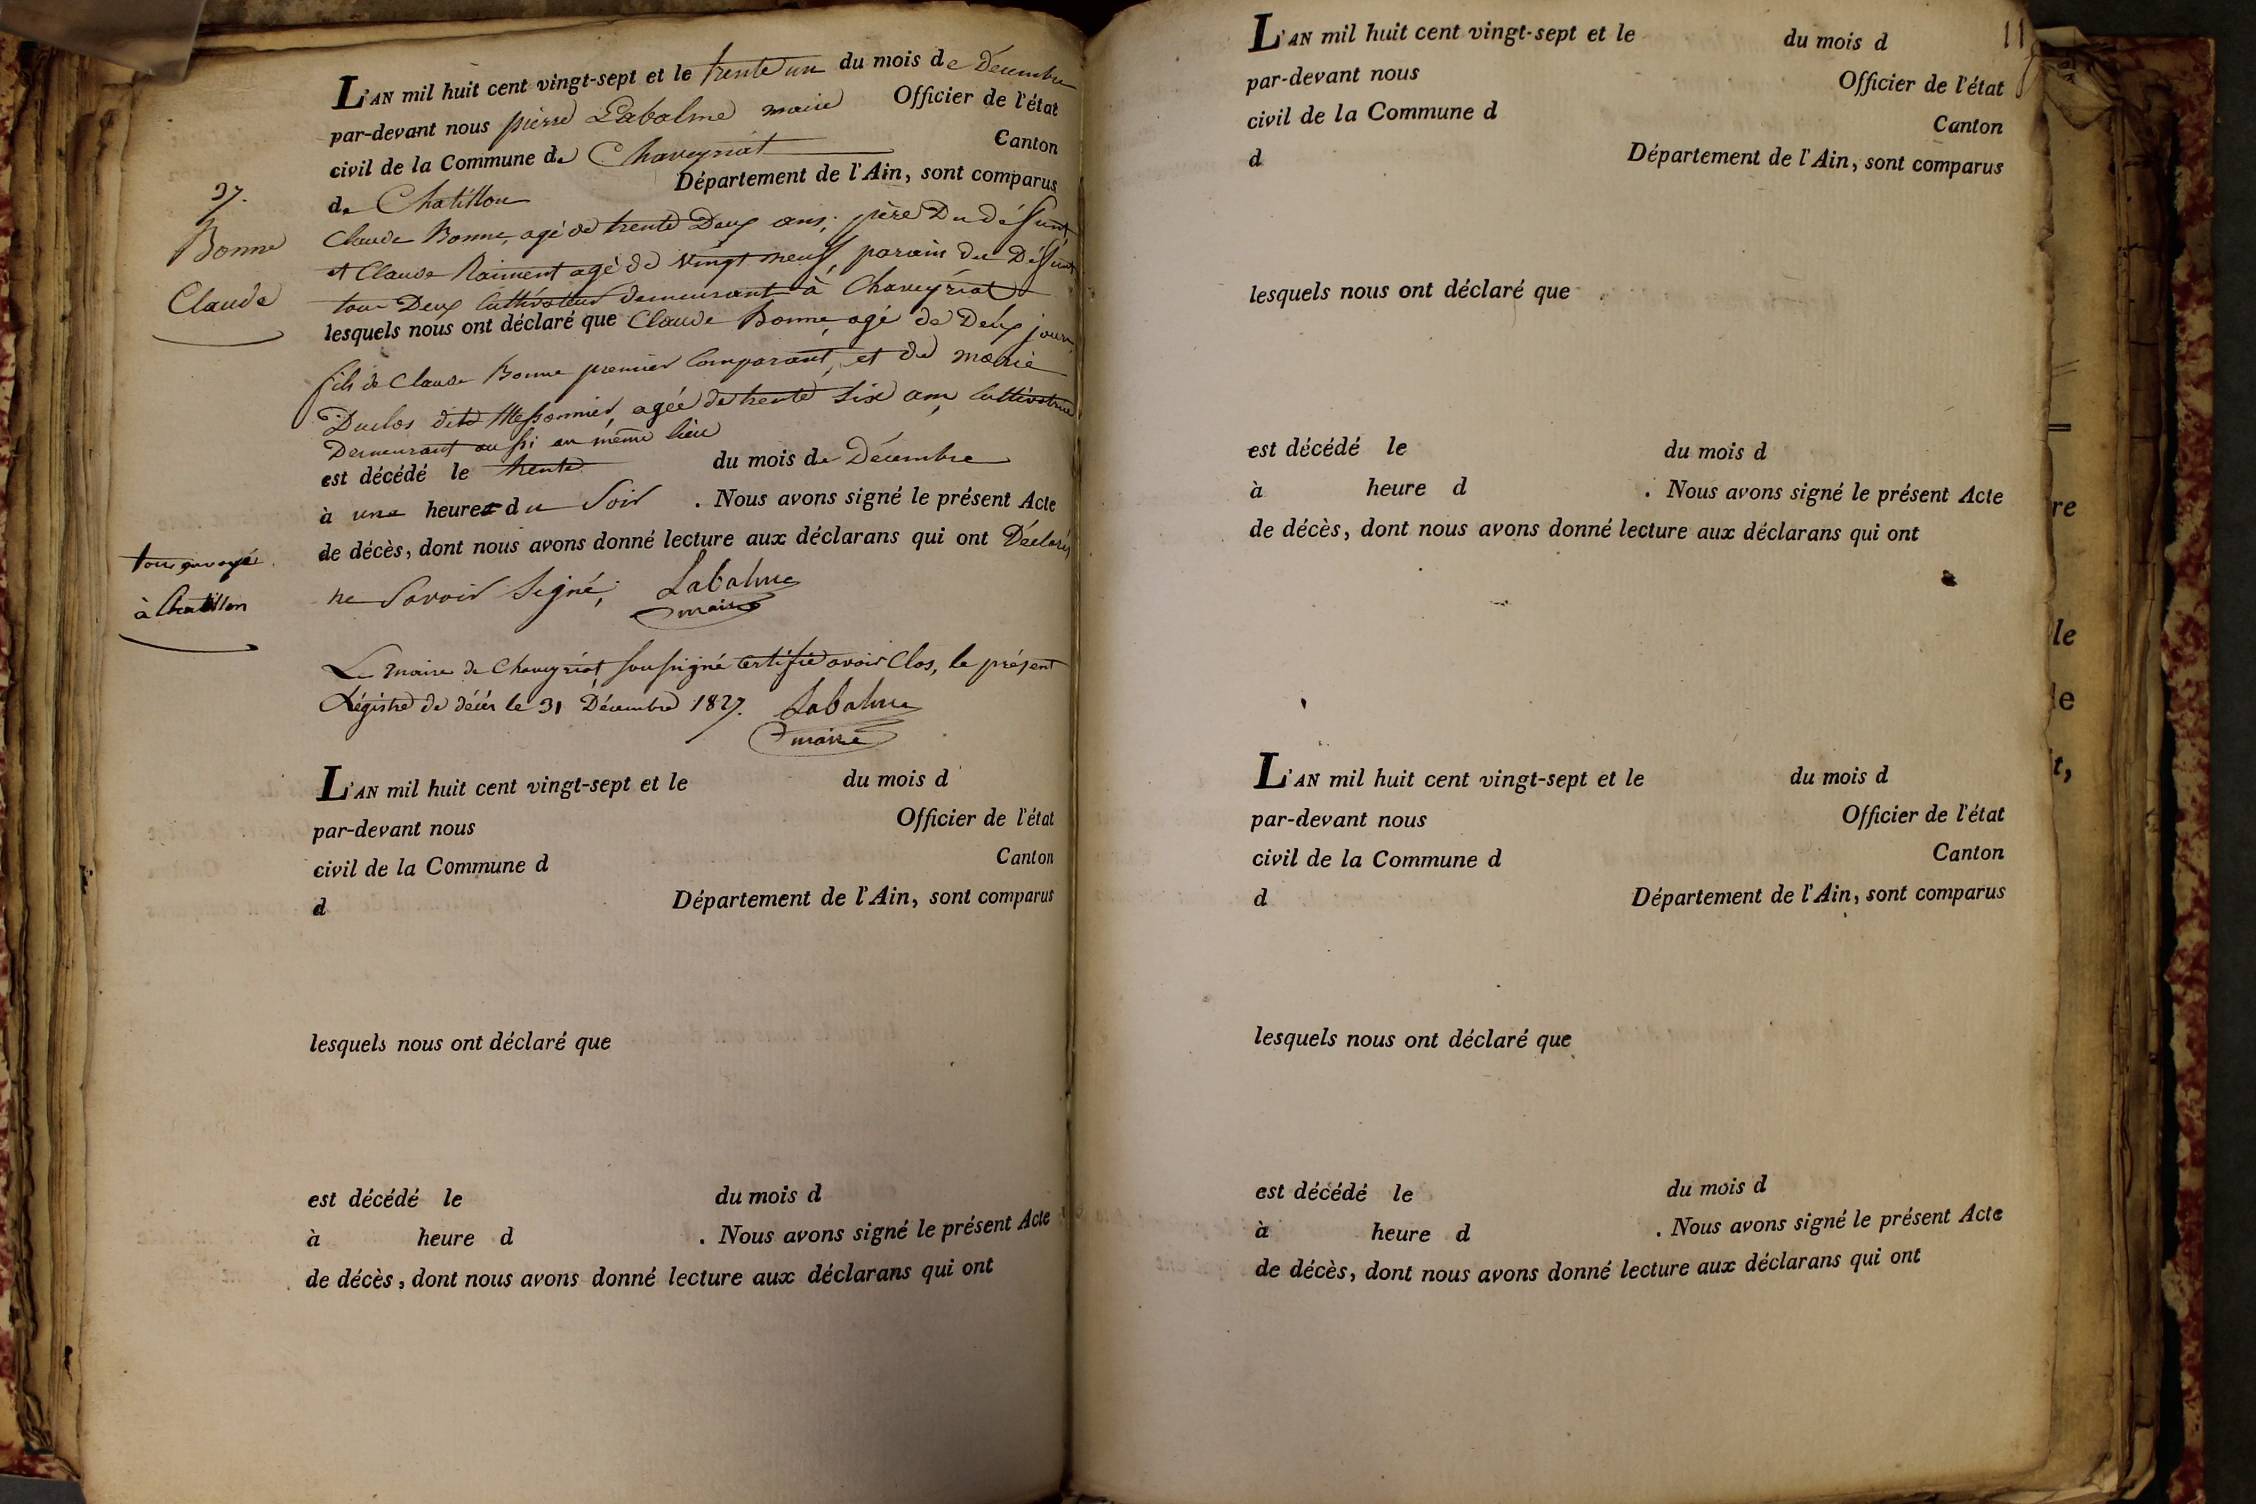 L'AN mil huit cent vingt-sept et le trente un du mois de Décembre
par-devant nous pierre Labalme maire Officier de l'état
civil de la Commune de Chaveyriat Canton
de Chatillon Département de l'Ain, sont comparus
Claude Bonne, agé de trente Deux ans, père Du défunt,
et Claude Raiment agé de vingt neuf, parain du Défunt
tous Deux Cultivateurs demeurant à Chaveyriat
lesquels nous ont déclaré que Claude Bonne, agé de Deux jours,
fils de Claude Bonne premier Comparant, et de marie
Duclos dite Messonnier, agée de trente six ans, Cultivatrice
Demeurant aussi au même lieu
est décédé le trente du mois de Décembre
à une heure du Soir . Nous avons signé le présent Acte
de décès, dont nous avons donné lecture aux déclarans qui ont Déclarés
ne Savoir Signé; Labalme
maire
37.
Bonne
Claude
à Chatillon
Le maire de Chaveyriat soussigné certifie avoir Clos, le présent
Régistre de décès le 31 Décembre 1827. Labalme
maire
L'AN mil huit cent vingt-sept et le du mois d
par-devant nous Officier de l'état
civil de la Commune d Canton
d Département de l'Ain, sont comparus
lesquels nous ont déclaré que
est décédé le du mois d
à heure d . Nous avons signé le présent Acte
de décès, dont nous avons donné lecture aux déclarans qui ont
11
L'AN mil huit cent vingt-sept et le du mois d
par-devant nous Officier de l'état
civil de la Commune d Canton
d Département de l'Ain, sont comparus
lesquels nous ont déclaré que
est décédé le du mois d
à heure d . Nous avons signé le présent Acte
de décès, dont nous avons donné lecture aux déclarans qui ont
L'AN mil huit cent vingt-sept et le du mois d
par-devant nous Officier de l'état
civil de la Commune d Canton
d Département de l'Ain, sont comparus
lesquels nous ont déclaré que
est décédé le du mois d
à heure d . Nous avons signé le présent Acte
de décès, dont nous avons donné lecture aux déclarans qui ont
re
le
le
t,